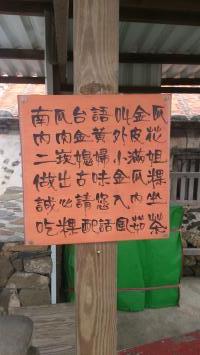 南瓜台語叫金瓜
內肉金黃外皮花
二玫媳婦小滿姐
做出古味金瓜粿
誠心請您入內坐
吃粿配話風茹茶